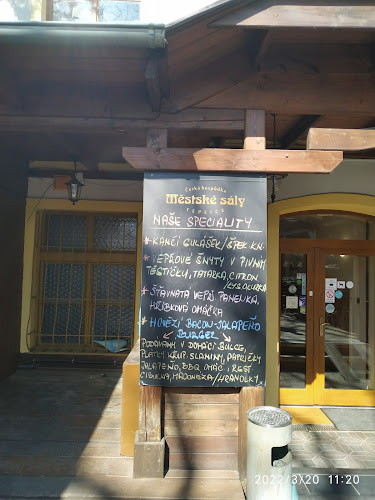 Česká hospůdka
Městské sály
TEPLICE
NAŠE SPECIALITY
* KANČÍ GULÁŠEK/ŠPEK. KN.
* VEPŘOVÉ ŠNYTY V PIVNÍM
TĚSTÍČKU, TATARKA, CITRON
* ŠŤAVNATÁ VEPŘ. PANENKA,
HŘÍBKOVÁ OMÁČKA
* HOVĚZÍ BACON-JALAPEÑO
BURGER
PODÁVANÝ V DOMÁC. BULCE,
PLÁTKY KŘUP. SLANINY, PAPRIČKY
JALAPEÑO, BBQ OMÁČ., REST.
CIBULKA, MAJONÉZA/HRANOLKY
2022/3/20 11:20